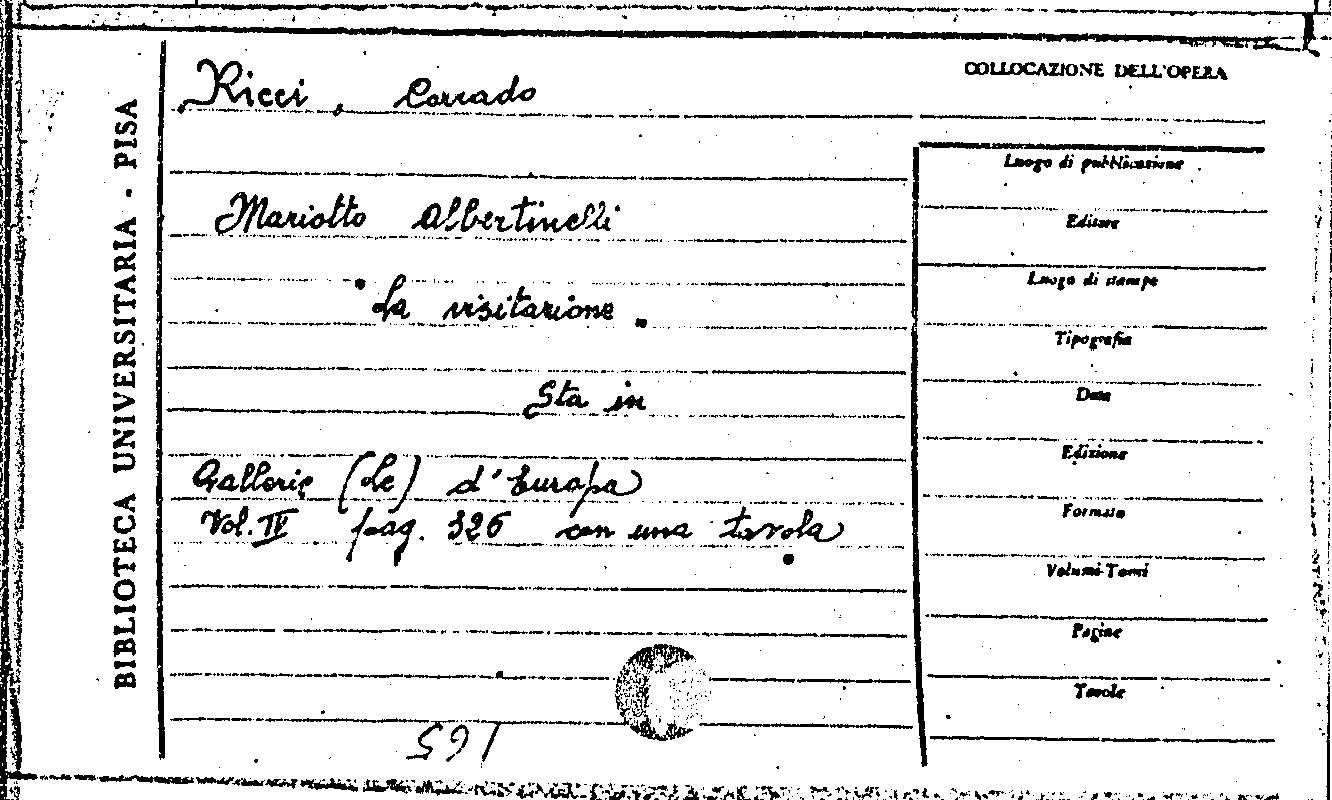 BIBLIOTECA UNIVERSITARIA - PISA
COLLOCAZIONE DELL'OPERA
Ricci, Corrado
Mariotto Albertinelli
"La visitazione".
Sta in
Gallerie (Le) d'Europa
Vol. IV pag. 326 con una tavola.
Luogo di pubblicazione
Editore
Luogo di stampa
Tipografia
Data
Edizione
Formato
Volumi-Tomi
Pagine
Tavole